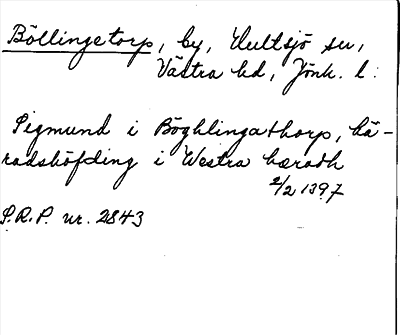 Böllingetorp, by, Hultsjö sn,
Västra hd, Jönk. l:
Sigmund i Böghlingathorp, hä-
radshöfding i Westra hæradh
2/2 1397
S.R.P. nr. 2843